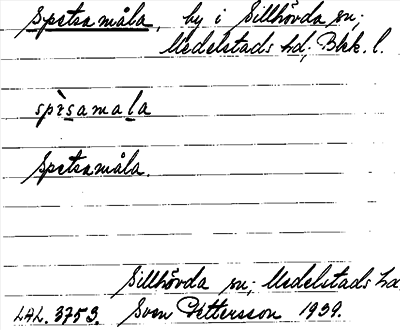 Spetsamåla, by i Sillhövda sn;
Medelstads hd; Blek. l.
spìsamala
Spetsamåla.
Sillhövda sn; Medelstads hd
LAL. 3753. Sven Pettersson 1939.